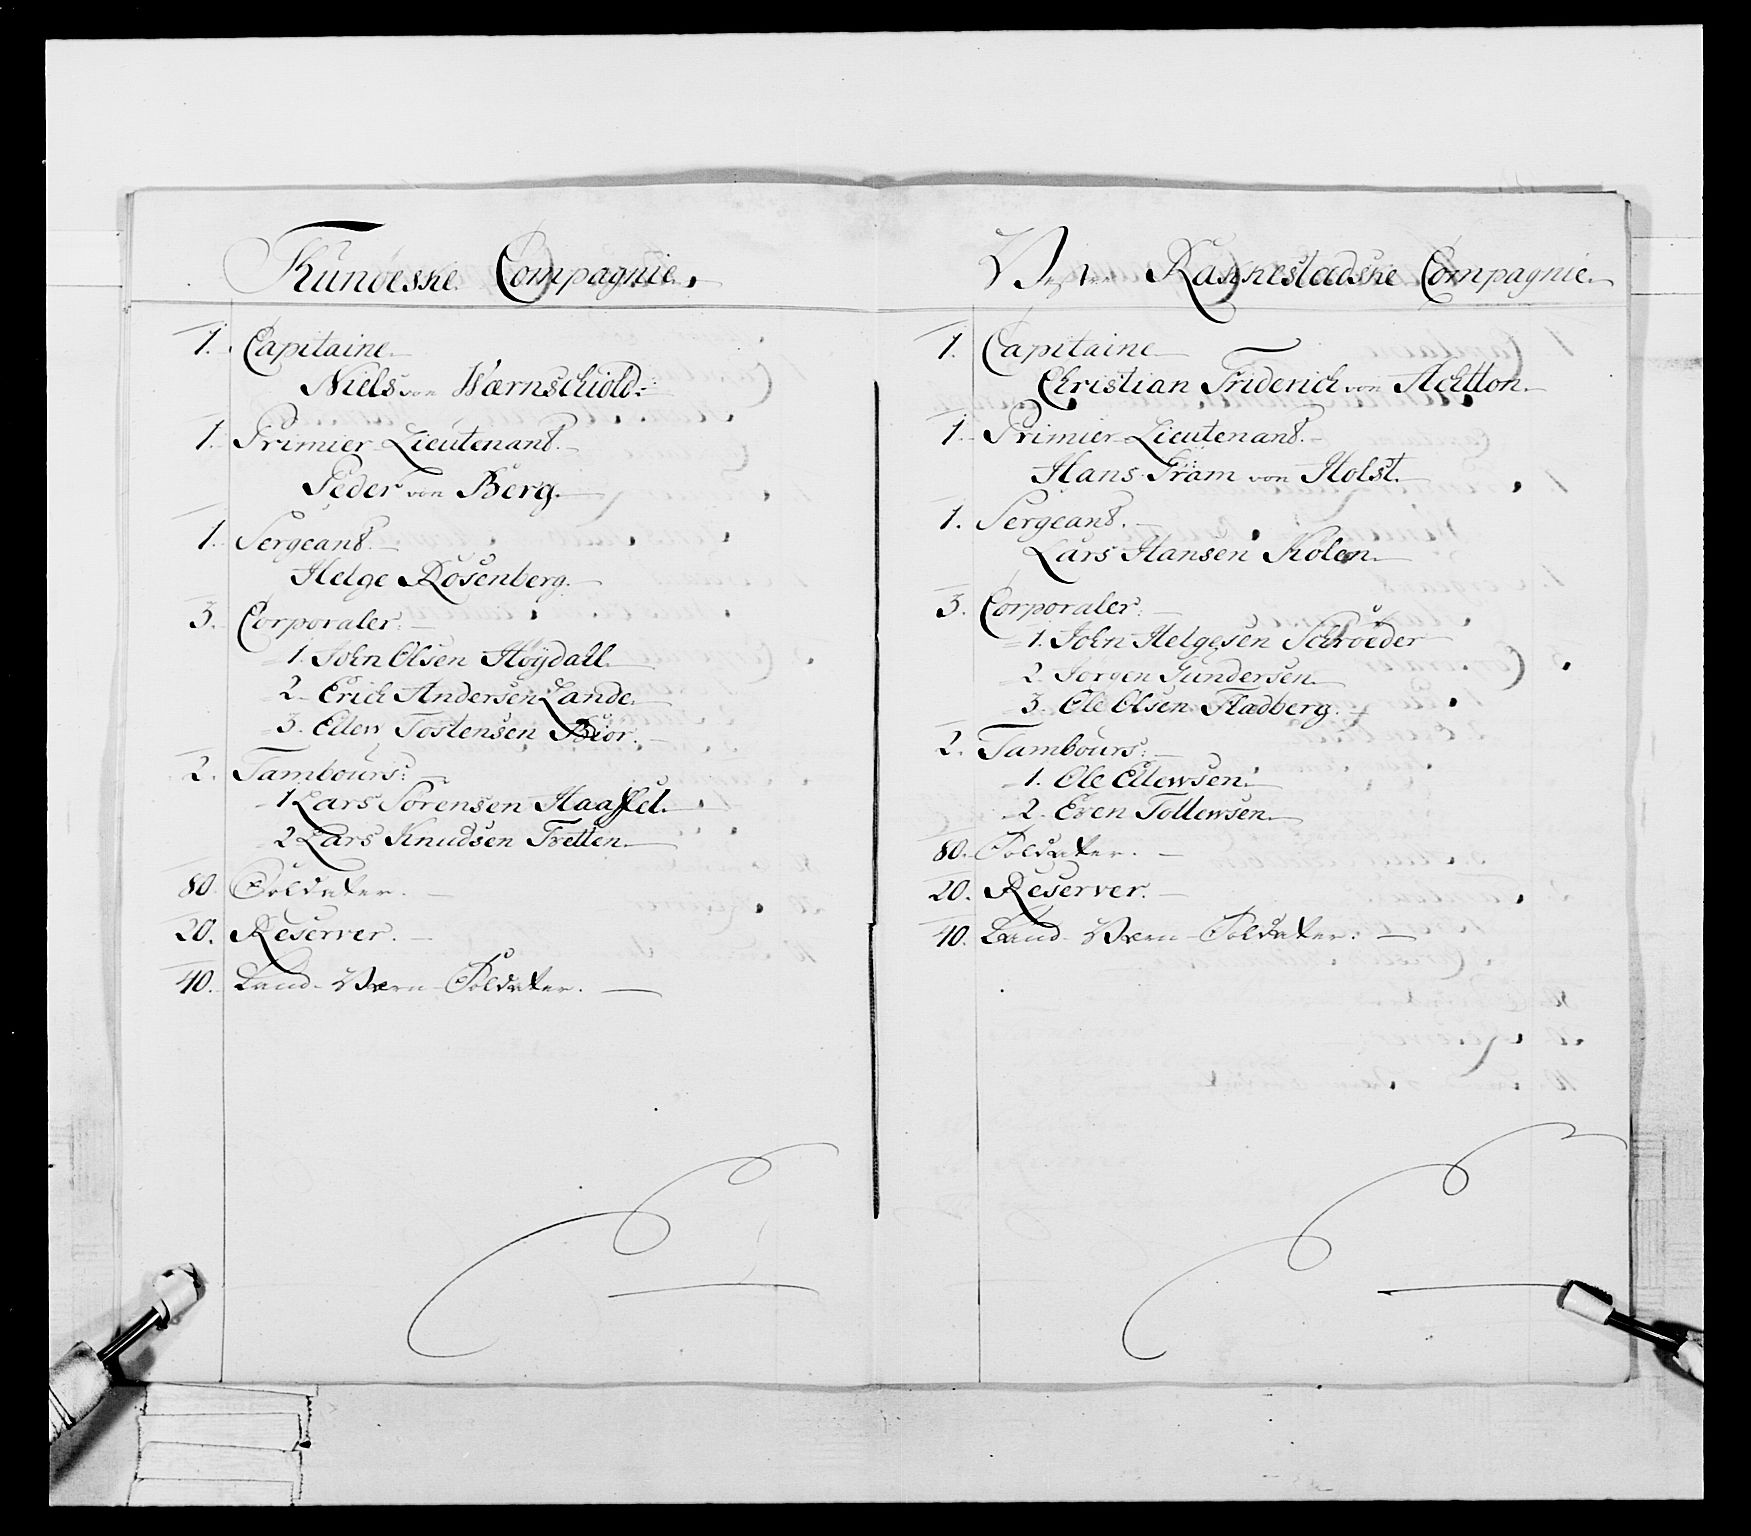 Thunöeske Compagnie.
1. Capitaine.
Niels von Wærnschiold.
1. Primier-Lieutenant.
Peder von Berg.
1. Sergeant.
Helge Rosenberg.
3. Corporaler.
1. John Olsen Höydall.
2. Erich Andersen Lande.
3. Ellew Tostensen Bior.
2. Tambours:
1 Lars Sörensen Haassel.
2 Lars Knudsen Tvetten.
80. Soldater.
20. Reserver.
40. Land-Værn-Soldater.
Rakkestadske Compagnie.
1. Capitaine
Christian Friderich von Achtton.
1. Primier-Lieutenant.
Hans Fram von Holst.
1. Sergeant.
Lars Hansen Kolen.
3. Corporaler:
1. John Helgesen Schroeder
2. Jörgen Gundersen.
3. Ole Olsen Fladberg.
2. Tambours:
1. Ole Ellewsen.
2. Even Tollewsen.
80. Soldater.
20. Reserver.
40. Land-Værn-Soldater.